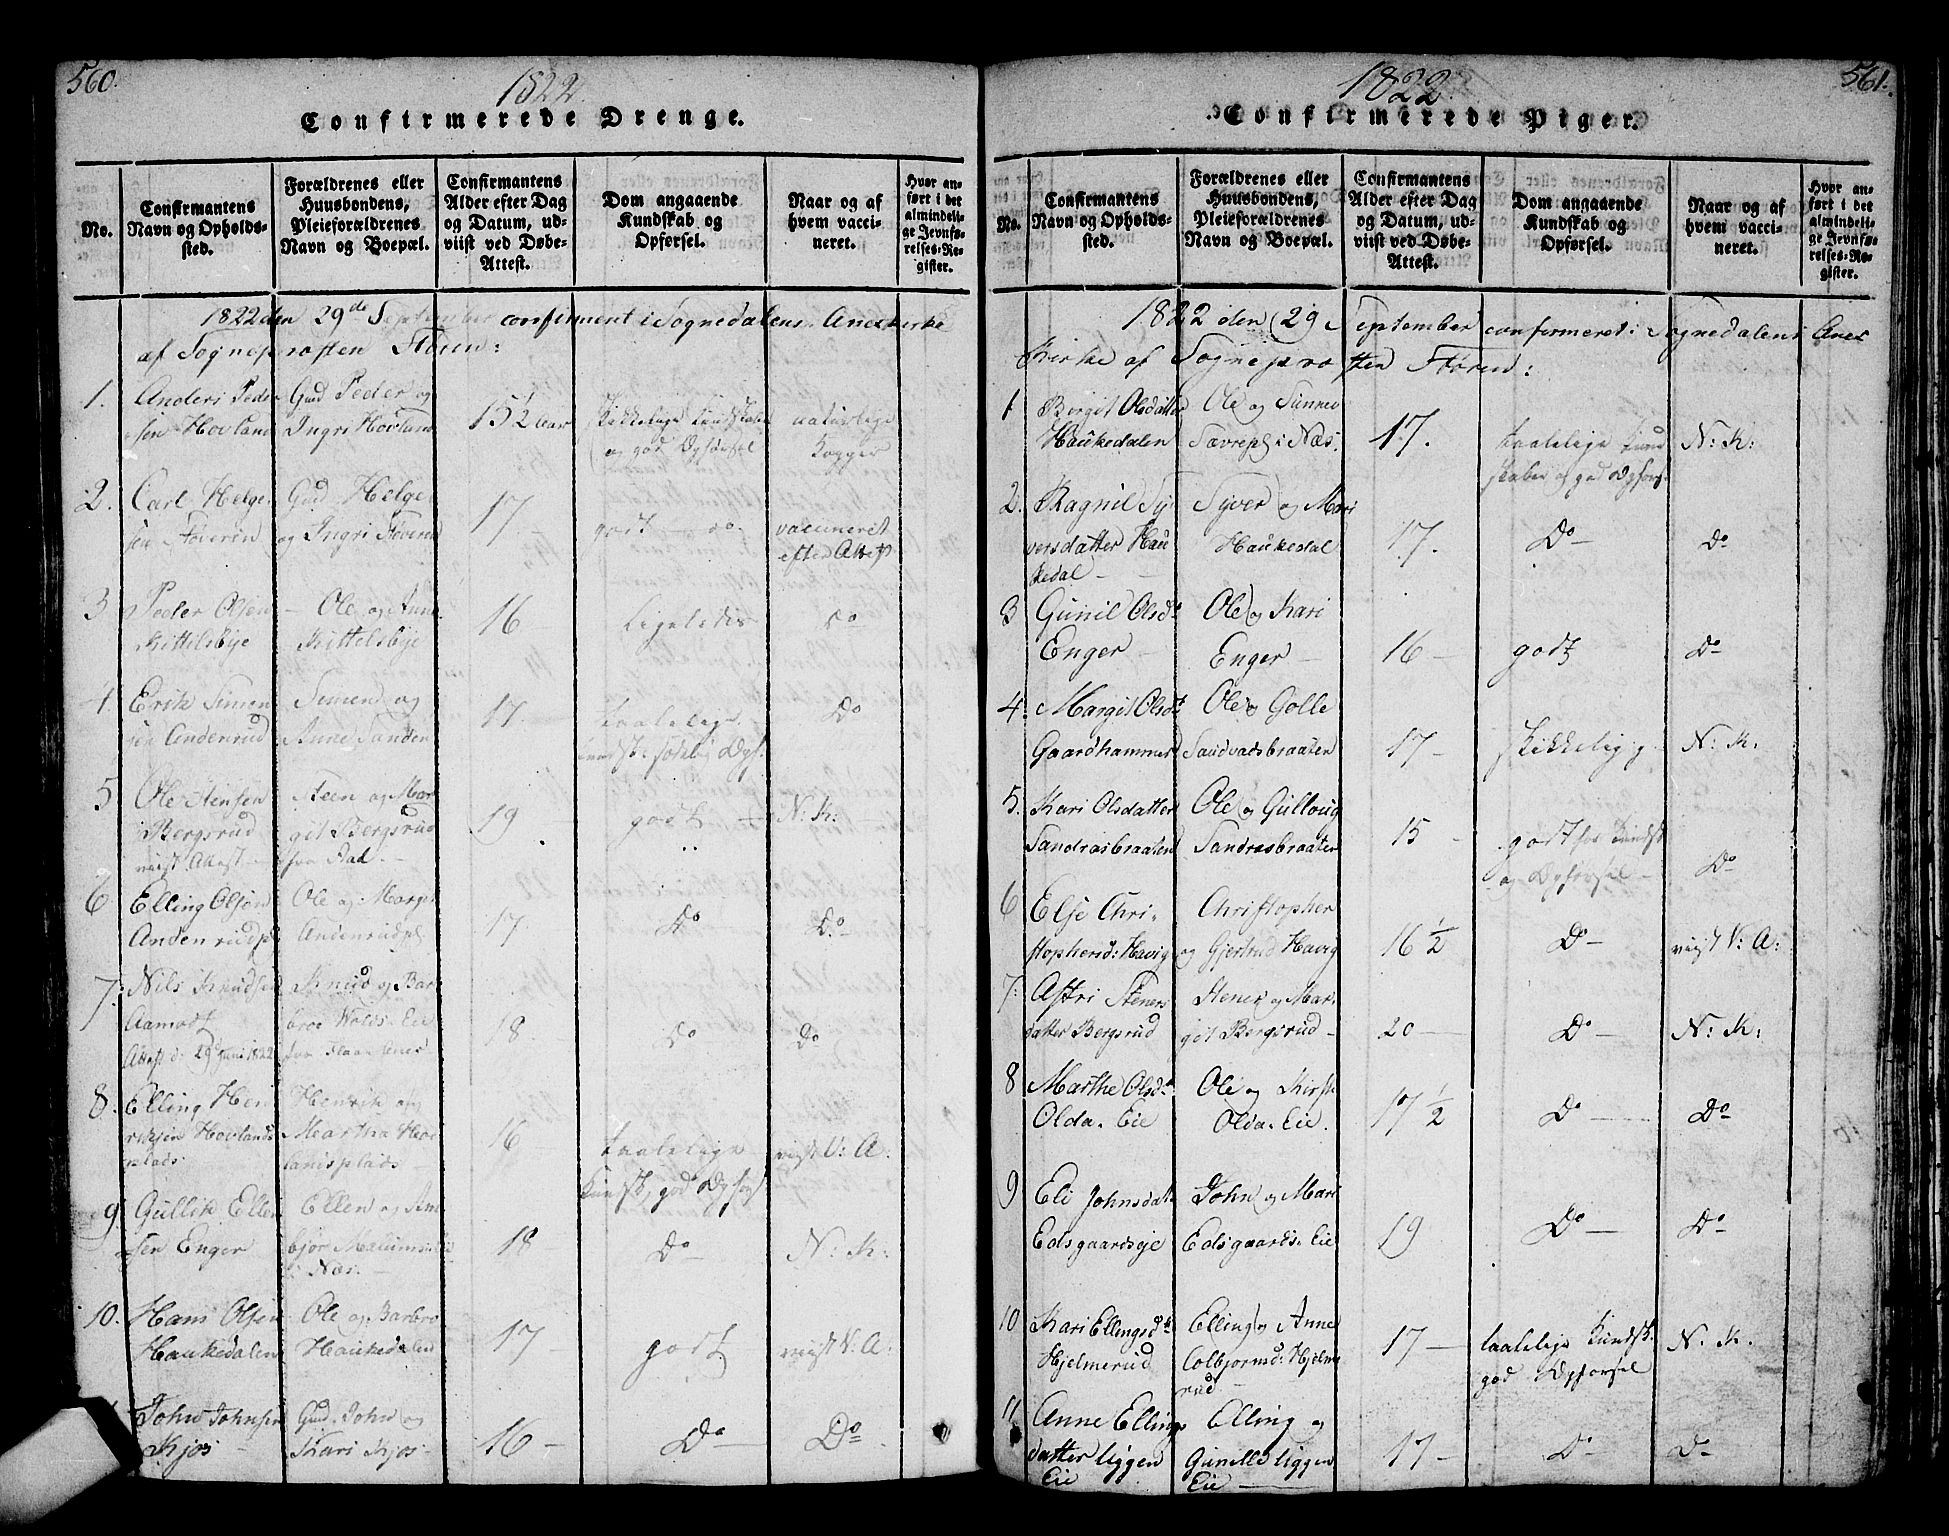 560.
1822.
Confirmerede Drenge.
No.
Confirmantens
Navn og Opholds-
sted.
Forældrenes eller
Huusbondens,
Pleieforældrenes
Navn og Boepæl.
Confirmantens
Alder efter Dag
og Datum, ud-
viist ved Døbe-
Attest.
Dom angaaende
Kundskab og
Opførsel.
Naar og af
hvem vacci-
neret.
Hvor an-
ført i det
almindeli-
ge Jevnfø-
relses-Re-
gister.
1822 den 29de September confirmeret i Sognedalens Anexkirke
af Sognepræsten Støren:
1.
Anders Peder
sen Hovland
Gud Peder og
Ingri Hovland
15½ aar
skikkelige Kundskaber
og god Opførsel
naturlige
Kopper
2.
Carl Helge
sen
Gud Helge
og Ingri
17
godt do.
vaccineret
efter Attest
3
Peder Olsen
Kittelsbye
Ole og Anne
Kittelsbye
16
Ligeledes
do
4
Erik Simen
sen Andenrud
Simen og
Anne Sanden
17
taalelige
Kundsk: Opf.
Do
5
Ole Stensen
Bergsrud
viist Attest
Steen og Mar
git Bergsrud
fra Aad.
19
godt
N: K:
6
Elling Olsen
Andenrudpl
Ole og Margit
Andenrudpl
17
Do
Do
7.
Nils Knudsen
Aamodt
Attest d: 29 Juni 1822
Knud og Bar
broe Wolds-Eie
fra
18
Do
Do
8.
Elling Hen
riksen Hovlands
plads
Henrik og
Martha Hov
landsplads
16
taalelige
Kundsk, god Opførs
viist V: A:
9
Gullik Ellen
sen Enger
Ellen og Am
bjør
i Næs.
18
Do
N: K:
10.
Hans Olsen
Haukedalen
Ole og Barbro
Haukedalen
17
godt
viist V: A:
John Johnsen
Kjos
Gud John og
Kari Kjos
16
Do
Do
561.
1822
Confirmerede Piger.
No.
Confirmantens
Navn og Opholds-
sted.
Forældrenes eller
Huusbondens,
Pleieforældrenes
Navn og Boepæl.
Confirmantens
Alder efter Dag
og Datum, ud-
viist ved Døbe-
Attest.
Dom angaaende
Kundskab og
Opførsel.
Naar og af
hvem vacci-
neret.
Hvor an-
ført i det
almindeli-
ge Jevnfø-
relses-Re-
gister.
1822 den 29 September confirmeret i Sognedalens Anex
Kirke af Sognepræsten Støren:
1
Bergit Olsdatter
Haukedalen
Ole og Sunnev
Sævrepl i Næs
17.
taalelige Kund
skaber og god Opførs.
N: K:
2.
Ragnil Sy
versdatter Hau
kedal
Syver og Mari
Haukedal
17.
Do
Do
3
Gunil Olsd:
Enger
Ole og Kari
Enger
16
godt
Do
4.
Margit Olsd:
Gaardhammer
Ole og Golle
Sandvadsbraaten
17
skikkelig
N: K:
5.
Kari Olsdatter
Sandrasbraaten
Ole og Gulloug
Sandrasbraaten
15
godt for Kundsk
og Opførsel
Do
6
Else Chri-
stophersd: Havig
Christopher
og Gjertrud Havig
16½
Do
viist V: A:
7.
Astri Steners
datter Bergsrud
Stener og Mar
git Bergsrud
20
Do
N: K:
8
Marthe Olsd:
Olda-Eie
Ole og Kirste
Olda-Eie.
17½
Do
Do
9
Eli Johnsdat
Edsgaardseje
John og Mari
Edsgaards-Eie
19
Do
Do
10
Kari Ellingsd:
Hjelmerud
Elling og Anne
Colbjørnsd: Hjelme
rud
17
taalelige Kundsk.
god Opførsel
N: K:
11
Anne Ellings
datter liggen
Eie
Elling og
Gunille liggen
Eie
17
Do
Do